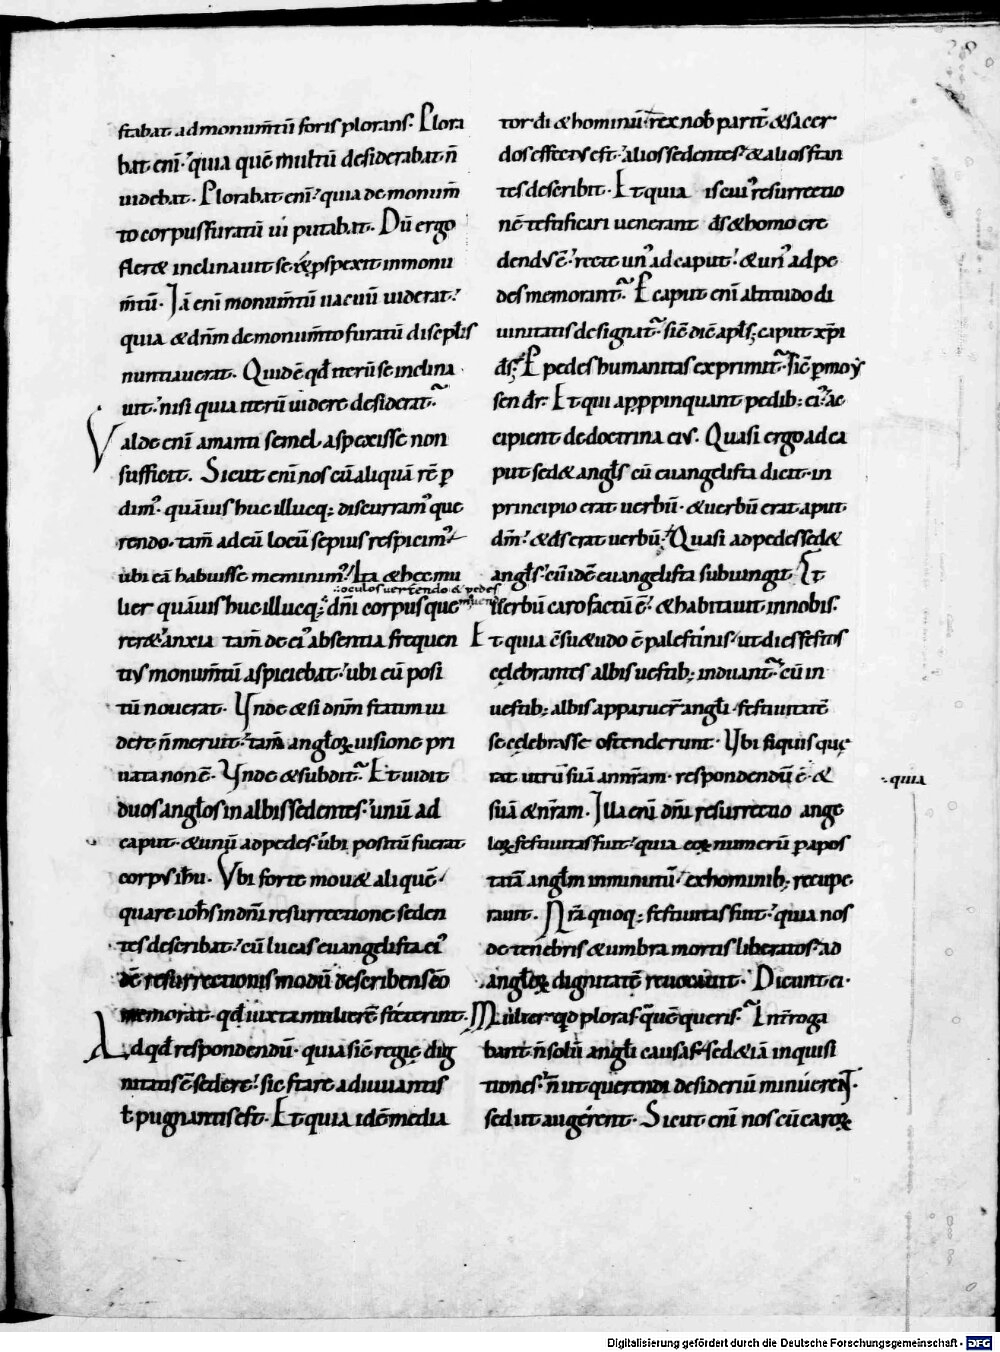 stabat ad monum̄tū foris plorans. Plora
bat eni. quia quē multū desiderabat n̄
uidebat. Plorabat eni. quia de monum̄
to corpus furatū ui putabat. Dū ergo
fler& inclinauit se & pspexit in monu
m̄tū. Iā eni monum̄tū uacuū uiderat.
quia & dn̄m de monum̄to furatū discipłis
nuntiauerat. Quid ē qd̄ iterū se inclina
uit. nisi quia iterū uidere desiderat.
Valde eni amanti semel aspexisse non
sufficit. Sicut eni nos cū aliquā rē p
dim᾿. quāuis huc illucq; discurram᾿ que
rendo. tam̄ ad eū locū sepius respicim᾿
ubi eā habuisse meminim᾿. Ita & hec mu
oculos uertendo & pedes
lier quāuis huc illucq; dn̄i corpus que
rer& anxia tam̄ de ei᾿ absentia frequen
tius monum̄tū aspiciebat. ubi eū posi
tū nouerat. Vnde & si dn̄m statim ui
dere n̄ meruit. tam̄ angłoꝝ uisione pri
uata non ē. Vnde & subdit᾿. Et uidit
duos angłos in albis sedentes. unū ad
caput. & unū ad pedes. ubi positū fuerat
corpus ih̄u. Vbi forte mou& aliquē
quare ioh̄s in dn̄i resurrectione seden
tes describat. cū lucas euangelista ei᾿
dē resurrectionis modū describens eo
memorat. qd̄ iuxta mulierē steterint.
Ad qd̄ respondendū. quia sic̄ regię dig
nitatis ē sedere. sic stare adiuuantis
ł pugnantis est. Et quia idē media
tor di & hominū. rex nob̄ parit̄ & sacer
dos effectus est. alios sedentes. & alios stan
tes describit. Et quia is cui᾿ resurrectio
nē testificari uenerant d̄s & homo cre
dendus ē. recte un᾿ ad caput. & un᾿ ad pe
des memorant᾿. P caput eni altitudo di
uinitatis designat᾿. sic̄ dic̄ apłs; caput xp̄i
d̄s. P pedes humanitas exprimit᾿. sic̄ p moy
sen dr̄. Et qui appppinquant pedib; ei᾿. ac
cipient de doctrina eius. Quasi ergo ad ca
put sed& angłs cū euangelista dicit. in
principio erat uerbū. & uerbū erat aput
dm̄. & ds̄ erat uerbū. Quasi ad pedes sed&
angłs. cū idē euangelista subiungit. Et
uerbū caro factū ē. & habitauit in nobis.
Et quia ēsu&udo ē palestinis. ut dies festos
celebrantes albis uestib; induant᾿. cū in
uestib; albis apparuer̄ angłi. festiuitatē
se celebrasse ostenderunt. Vbi si quis quę
rat utrū suā an nr̄am. respondendū ē. &
quia
suā & nr̄am. Illa eni dn̄i resurrectio ange
loꝝ festiuitas fuit. quia eoꝝ numerū p apos
tatā angłm inminutū. ex hominib; recupe
rauit. Nr̄a quoq; festiuitas fuit. quia nos
de tenebris & umbra mortis liberatos. ad
angłoꝝ dignitatē reuocauit. Dicunt ei.
Mulier qd ploras. quē queris. Int̄roga
bant n̄ solū angłi causas. sed & iā inquisi
tiones. n̄ ut querendi desideriū minuerent.
sed ut augerent. Sicut eni nos cū caroꝝ
Digitalisierung gefördert durch die Deutsche Forschungsgemeinschaft - DFG